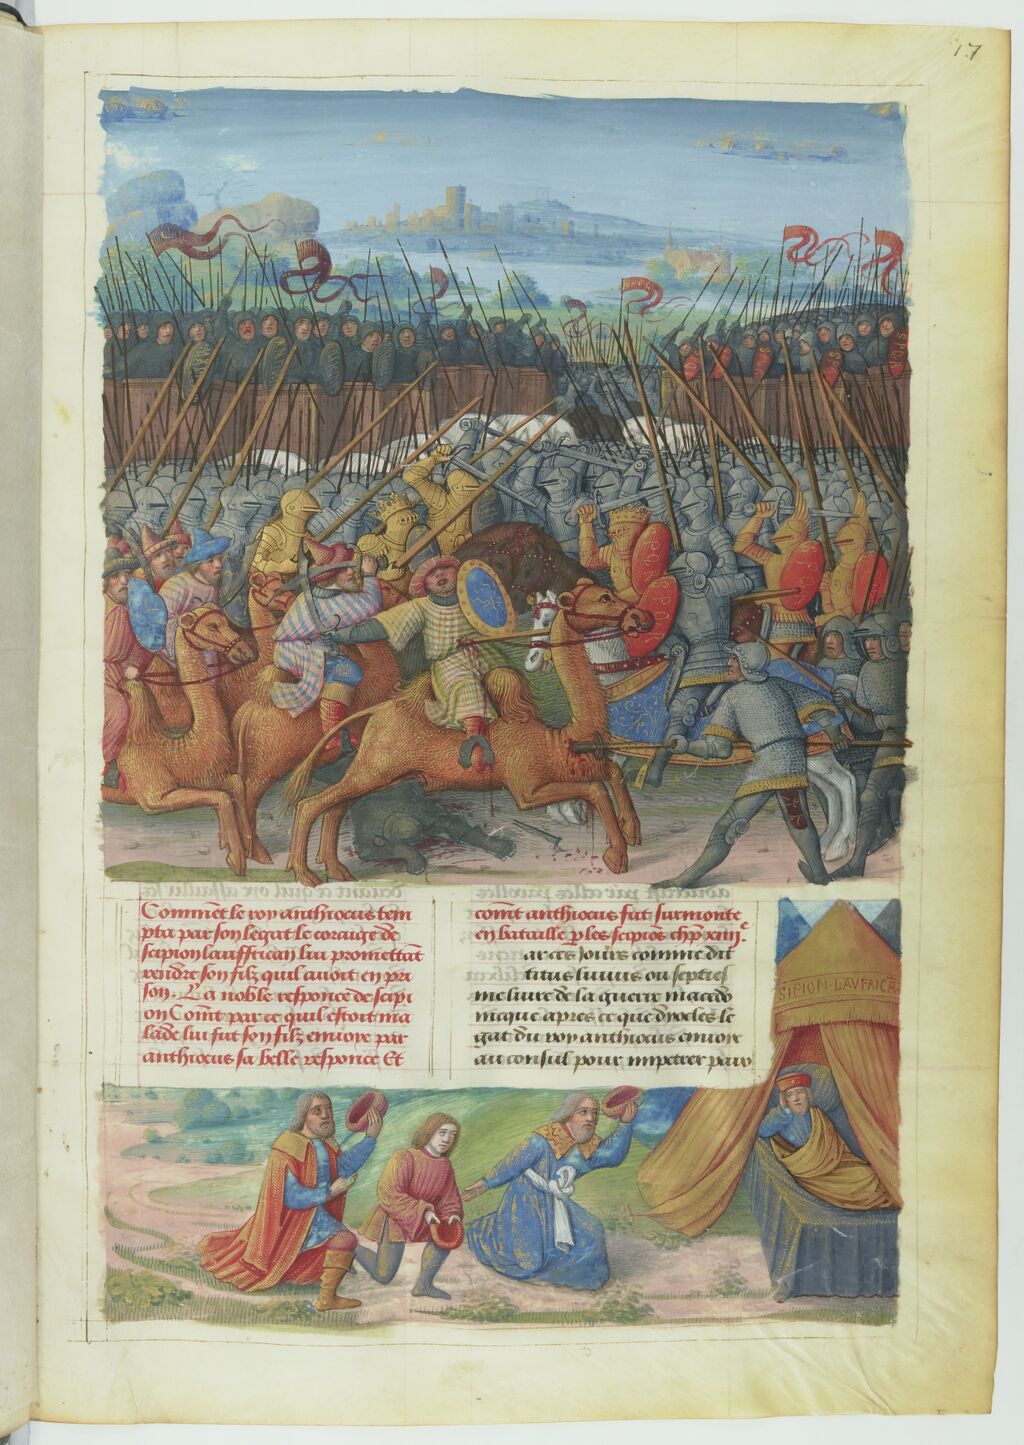 17
SPQR
SPQR
SPQR
SPQR
Comment le roy anthiocus tem
pta par son legat le coraige de
scipion lauffrican lui promettant
rendre son filz quil avoit en pri
son. La noble responce de scipi
on Com̄t par ce quil estoit ma
lade lui fut son filz envoye par
anthiocus sa belle responce Et
com̄t anthiocus fut surmonte
en bataille
ar ces jours comme dit
titus livius ou septies
me livre de la guerre macedo
nicque apres ce que
gat du roy anthiocus envoye
au consul pour impetrer paix
SIPION·LAVFRICA